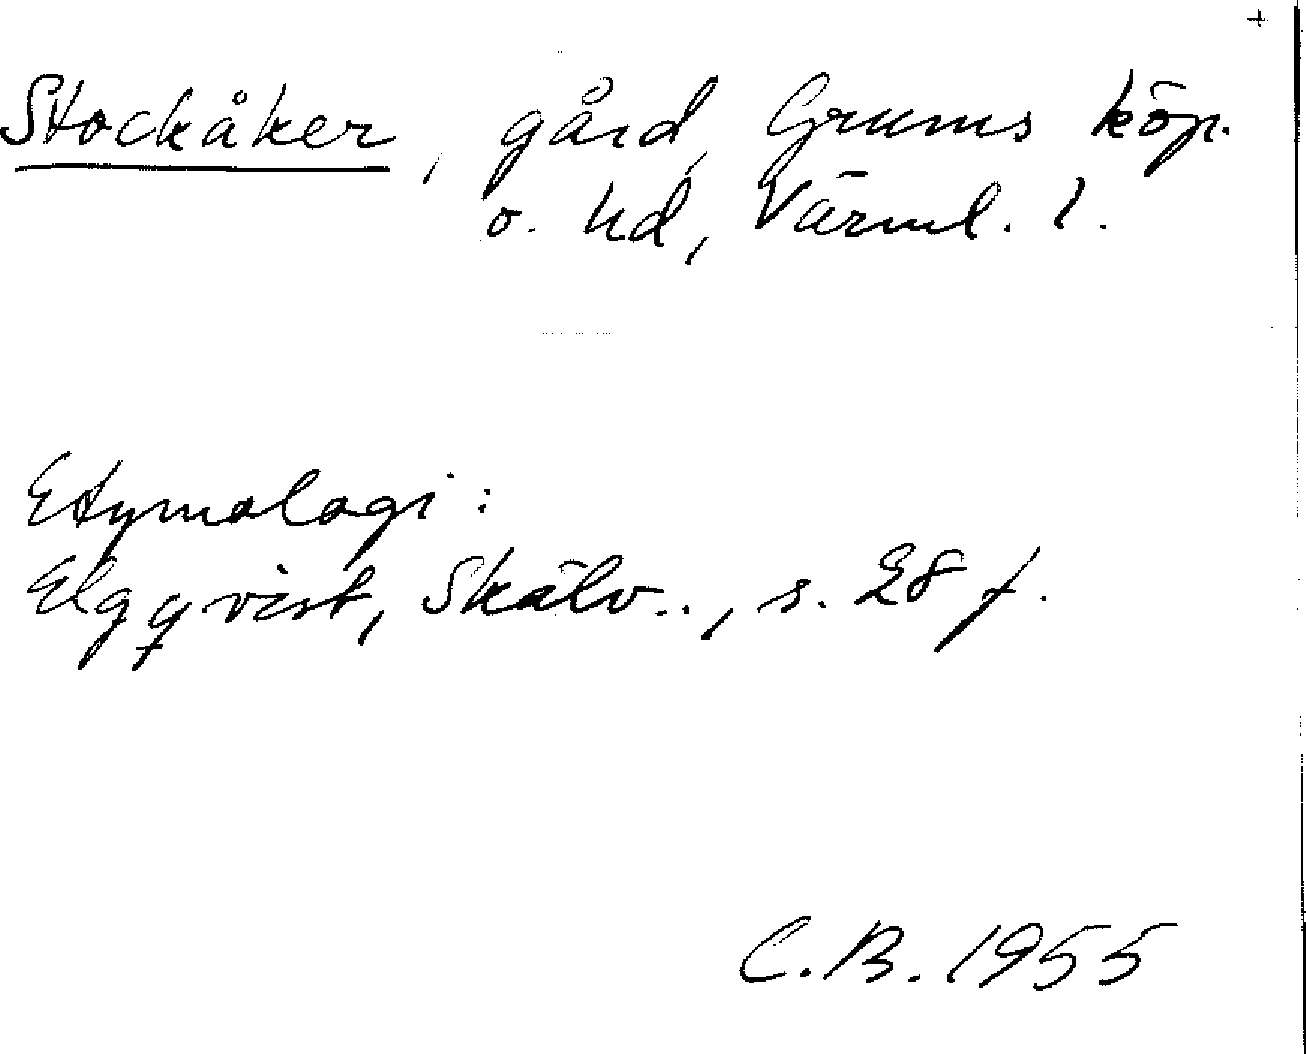 +
Stockåker, gård, Grums köp.
o. hd, Värml. l.
Etymologi:
Elgqvist, Skälv.., s. 28 f.
C.B. 1955